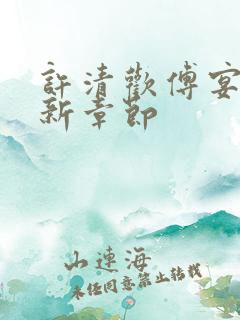 許清歡傅宴
新章節
山連海
未经同意禁止转载